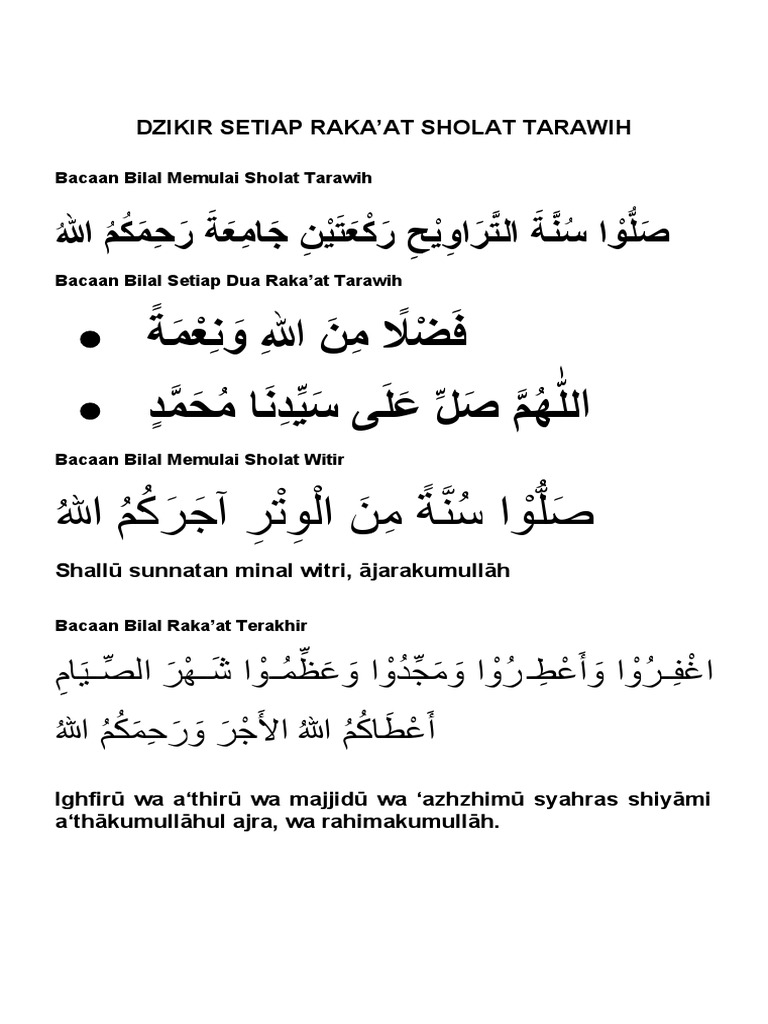 DZIKIR SETIAP RAKA’AT SHOLAT TARAWIH
Bacaan Bilal Memulai Sholat Tarawih
صَلُّوْا سُنَّةَ التَّرَاوِيْحِ رَكْعَتَيْنِ جَامِعَةَ رَحِمَكُمُ اللهُ
Bacaan Bilal Setiap Dua Raka’at Tarawih
● فَضْلًا مِنَ اللهِ وَنِعْمَةً
● اللّٰهُمَّ صَلِّ عَلَى سَيِّدِنَا مُحَمَّدٍ
Bacaan Bilal Memulai Sholat Witir
صَلُّوْا سُنَّةً مِنَ الْوِتْرِ آجَرَكُمُ اللهُ
Shallū sunnatan minal witri, ājarakumullāh
Bacaan Bilal Raka’at Terakhir
اغْفِـرُوْا وَأَعْطِـرُوْا وَمَجِّدُوْا وَعَظِّمُـوْا شَـهْرَ الصِّـيَامِ
أَعْطَاكُمُ اللهُ الأَجْرَ وَرَحِمَكُمُ اللهُ
Ighfirū wa a‘thirū wa majjidū wa ‘azhzhimū syahras shiyāmi
a‘thākumullāhul ajra, wa rahimakumullāh.